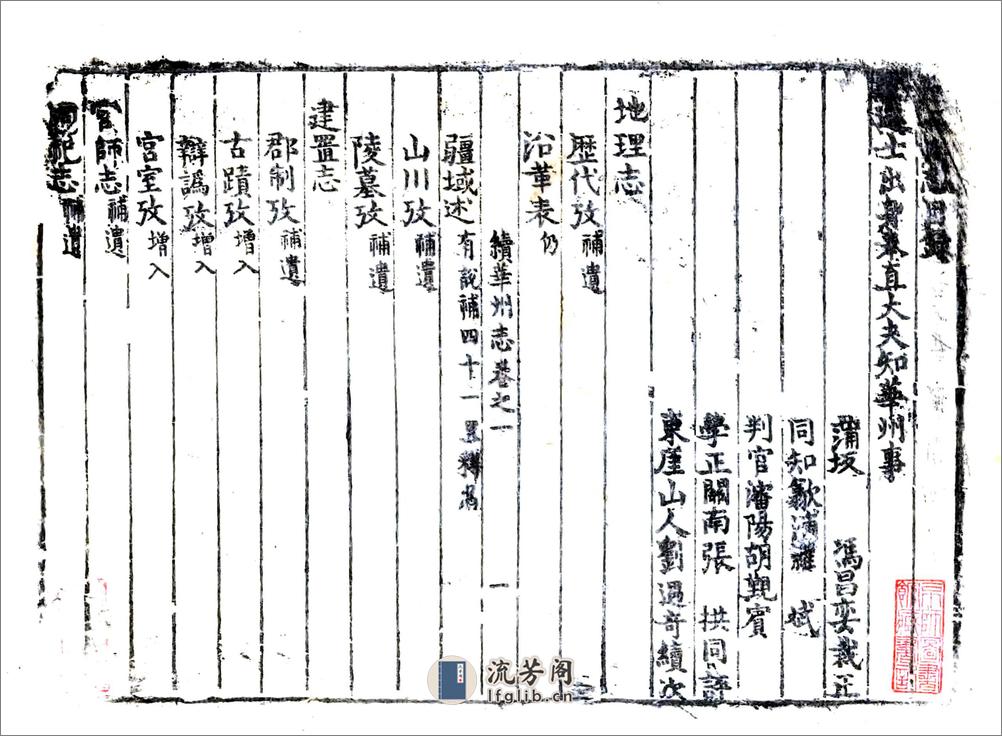 志目錄
進士出身奉直大夫知華州事
蒲坂 馮昌奕裁正
同知歙浦羅 斌
判官瀋陽胡觀賓
學正關南張 拱同評
東厓山人劉遇奇續次
地理志
歷代攷補遺
沿革表仍
續華州志卷之一 一
疆域述有說補四十一里
山川攷補遺
陵墓攷補遺
建置志
郡制攷補遺
古蹟攷增入
辯譌攷增入
宮室攷增入
官師志補遺
祠祀志補遺
流芳阁
lfglib.cn